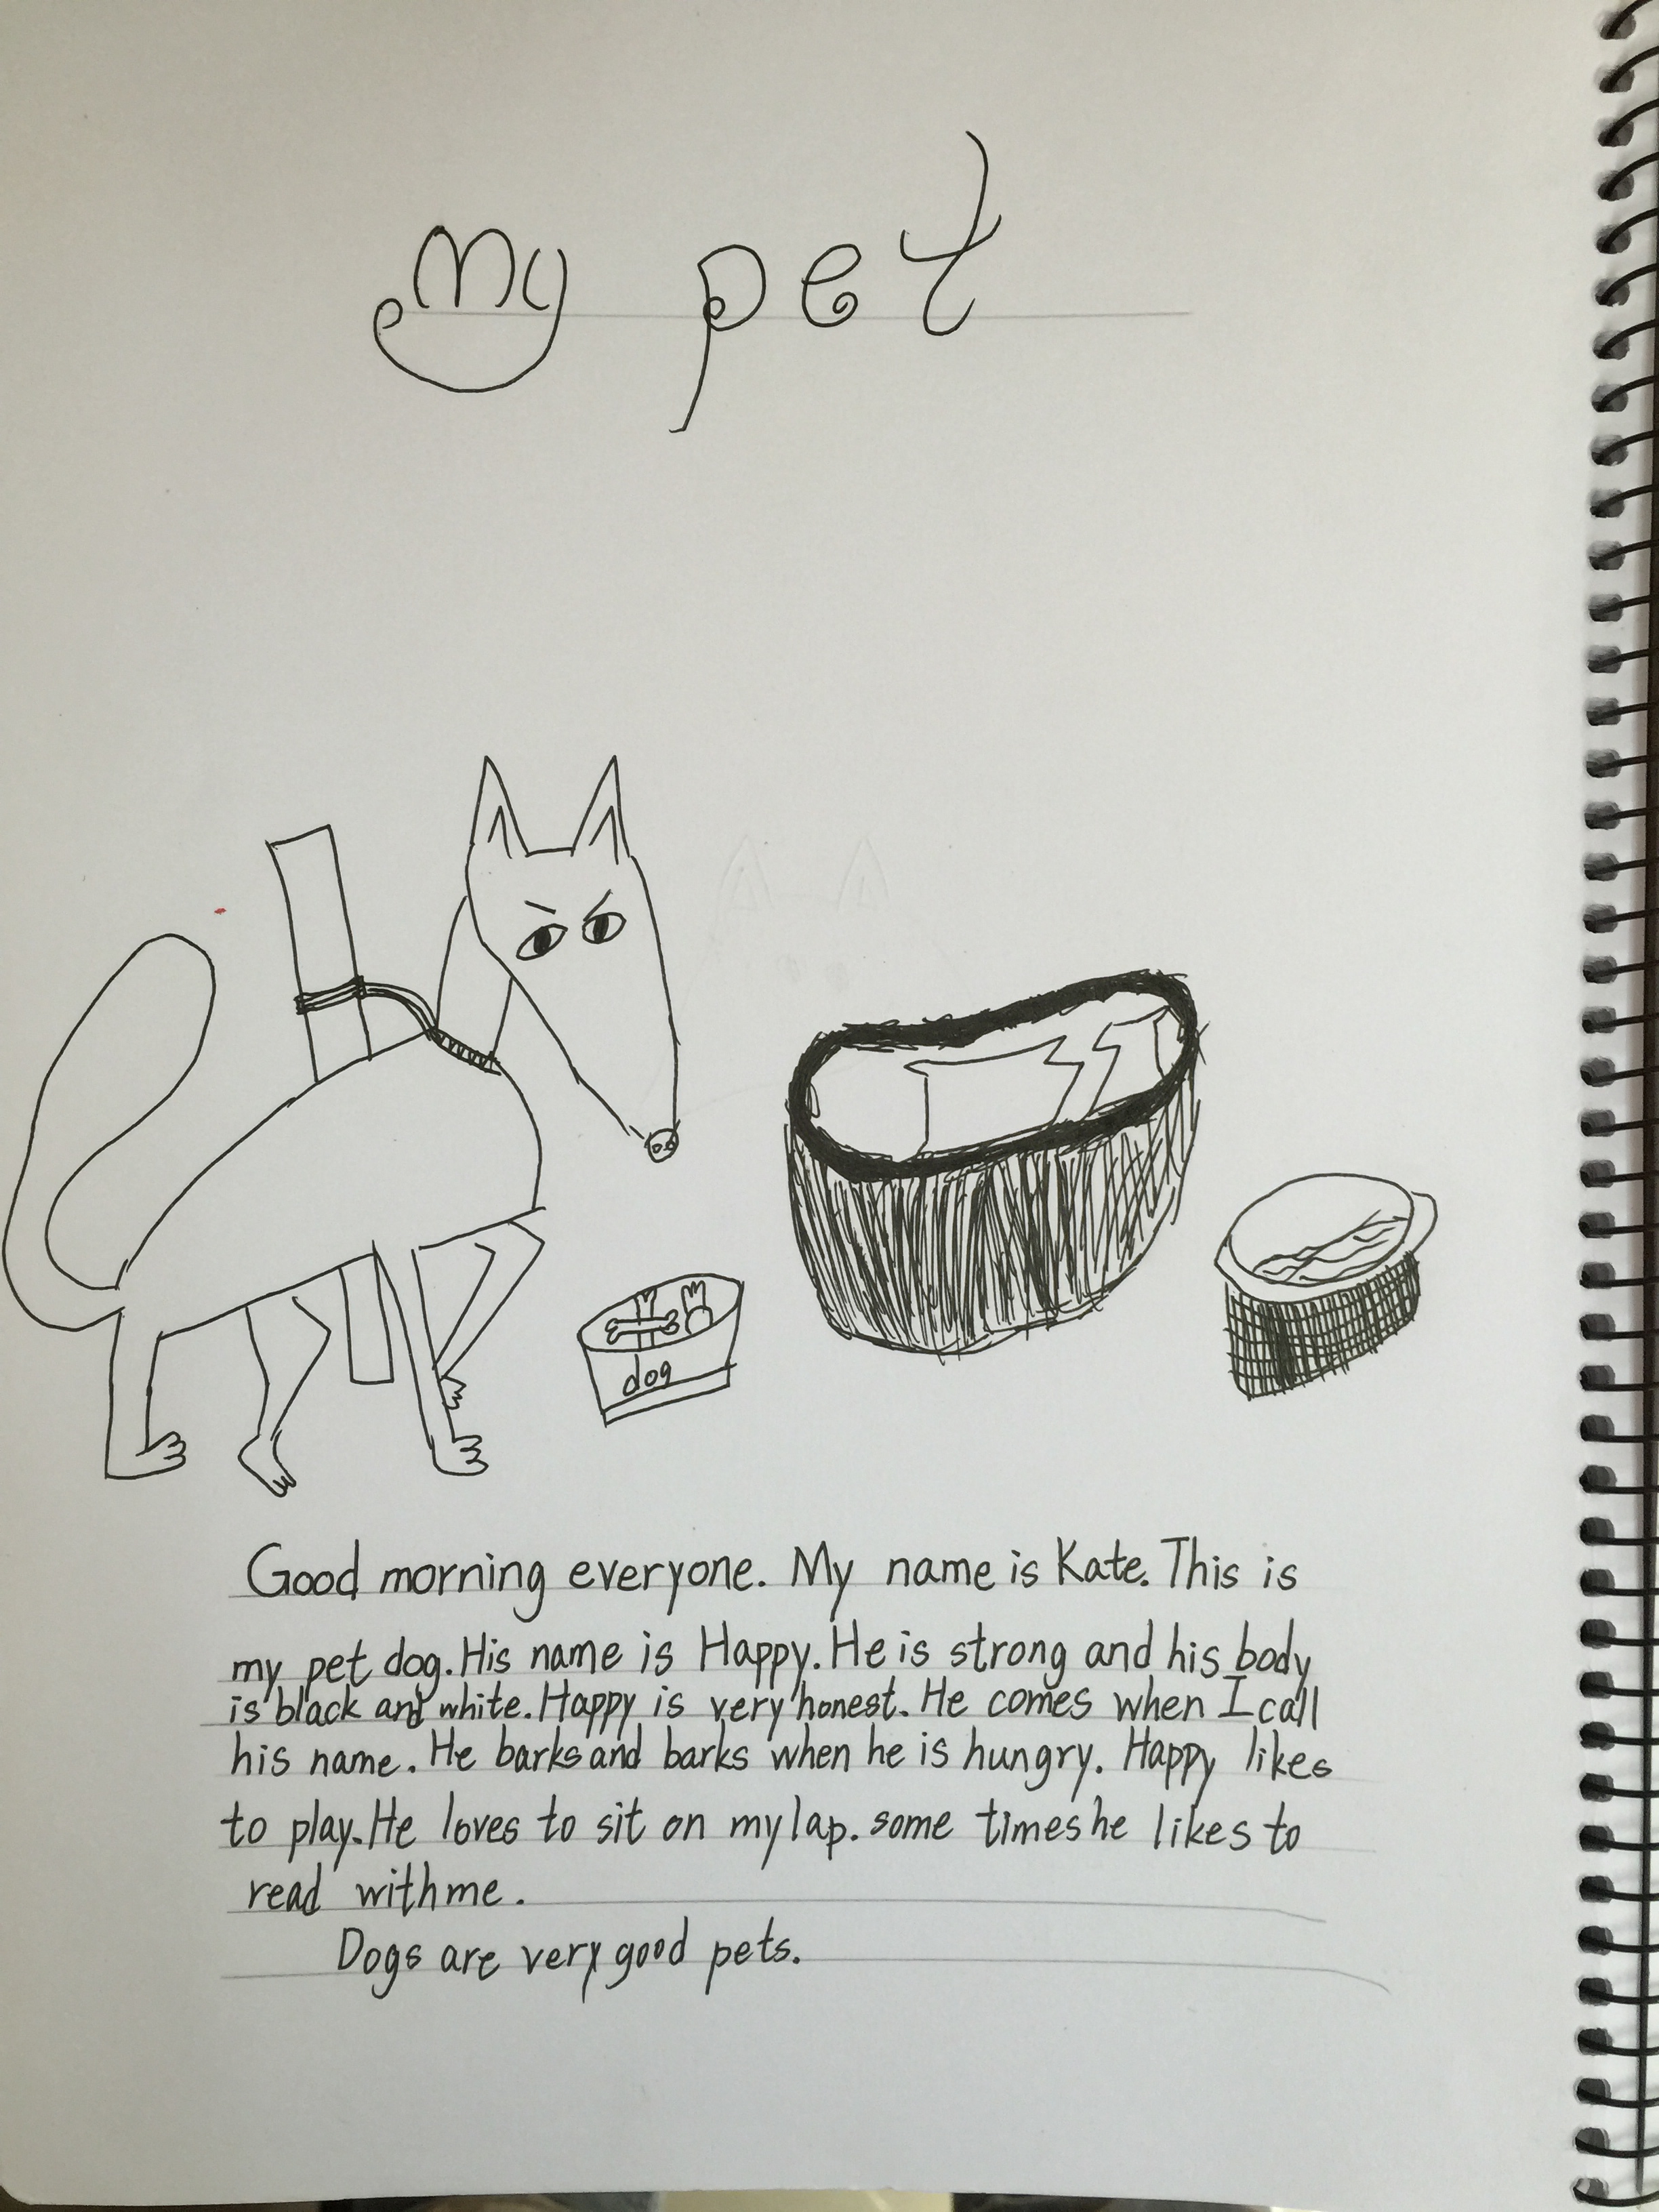 My pet
dog
Good morning everyone. My name is Kate. This is
my pet dog. His name is Happy. He is strong and his body
is black and white. Happy is very honest. He comes when I call
his name. He barks and barks when he is hungry. Happy likes
to play. He loves to sit on my lap. some times he likes to
read with me.
Dogs are very good pets.